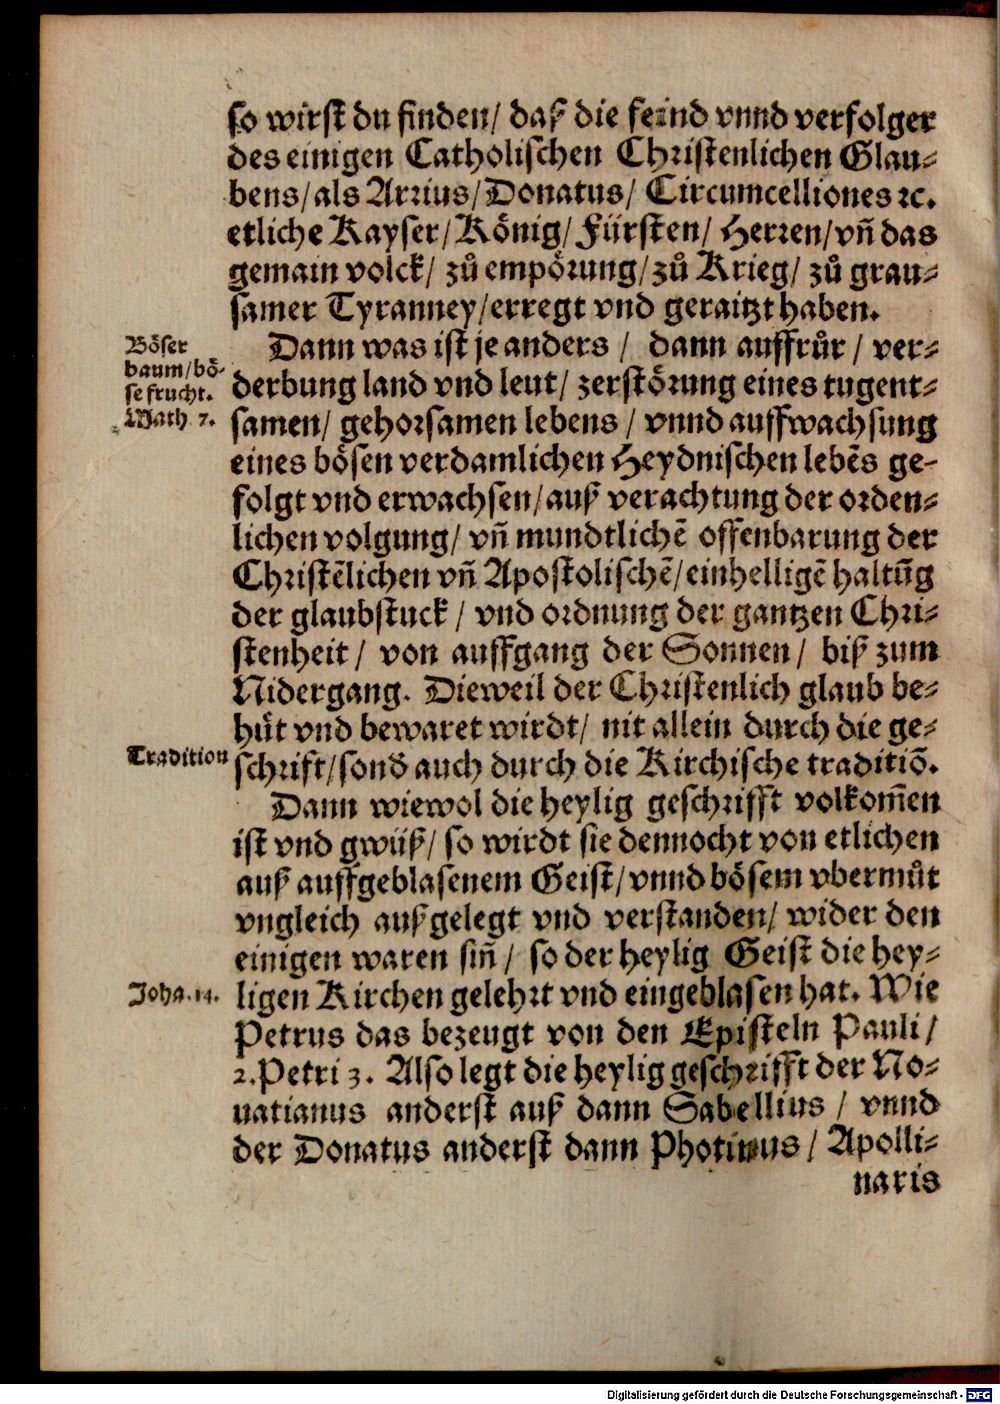 so wirst du finden/ daß die feind vnnd verfolger
des einigen Catholischen Christenlichen Glau-
bens/ als Arrius/ Donatus/ Circumcelliones ꝛc.
etliche Kayser/ König/ Fürsten/ Herren/ vñ das
gemain volck/ zů empörung/ zů Krieg/ zů grau-
samer Tyranney/ erregt vnd geraitzt haben.
Böser
baum/ bö-
se frucht.
Math 7.
Dann was ist je anders / dann auffrůr / ver-
derbung land vnd leut/ zerstörung eines tugent-
samen/ gehorsamen lebens / vnnd auffwachsung
eines bösen verdamlichen Heydnischen lebēs ge-
folgt vnd erwachsen/ auß verachtung der orden-
lichen volgung/ vñ mundtlichē offenbarung der
Christēlichen vñ Apostolischē/ einhelligē haltūg
der glaubstuck / vnd ordnung der gantzen Chri-
stenheit / von auffgang der Sonnen / biß zum
Nidergang. Dieweil der Christenlich glaub be-
hüt vnd bewaret wirdt/ nit allein durch die ge-
Tradition
schrift/ sond̄ auch durch die Kirchische traditiō.
Dann wiewol die heylig geschrifft volkom̄en
ist vnd gwiß/ so wirdt sie dennocht von etlichen
auß auffgeblasenem Geist/ vnnd bösem vbermůt
vngleich außgelegt vnd verstanden/ wider den
einigen waren siñ / so der heylig Geist die hey-
Joha. 14.
ligen Kirchen gelehrt vnd eingeblasen hat. Wie
Petrus das bezeugt von den Episteln Pauli/
2. Petri 3. Also legt die heylig geschrifft der No-
uatianus anderst auß dann Sabellius / vnnd
der Donatus anderst dann Photinus / Apolli-
naris
Digitalisierung gefördert durch die Deutsche Forschungsgemeinschaft - DFG